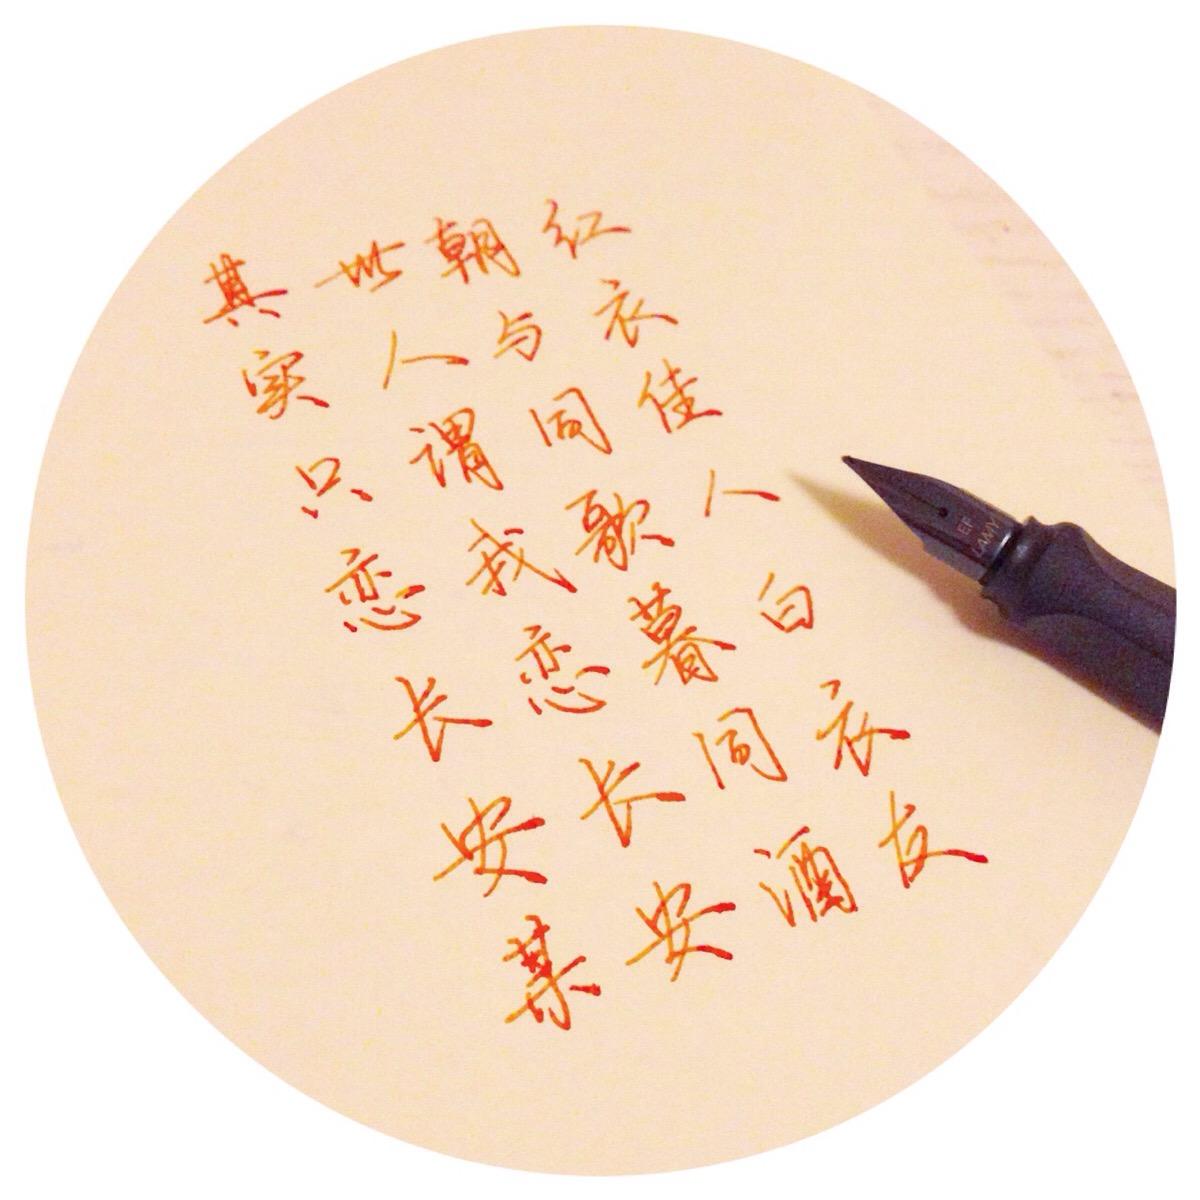 红衣佳人白衣友
朝与同歌暮同酒
世人谓我恋长安
其实只恋长安某
EF
LAMY